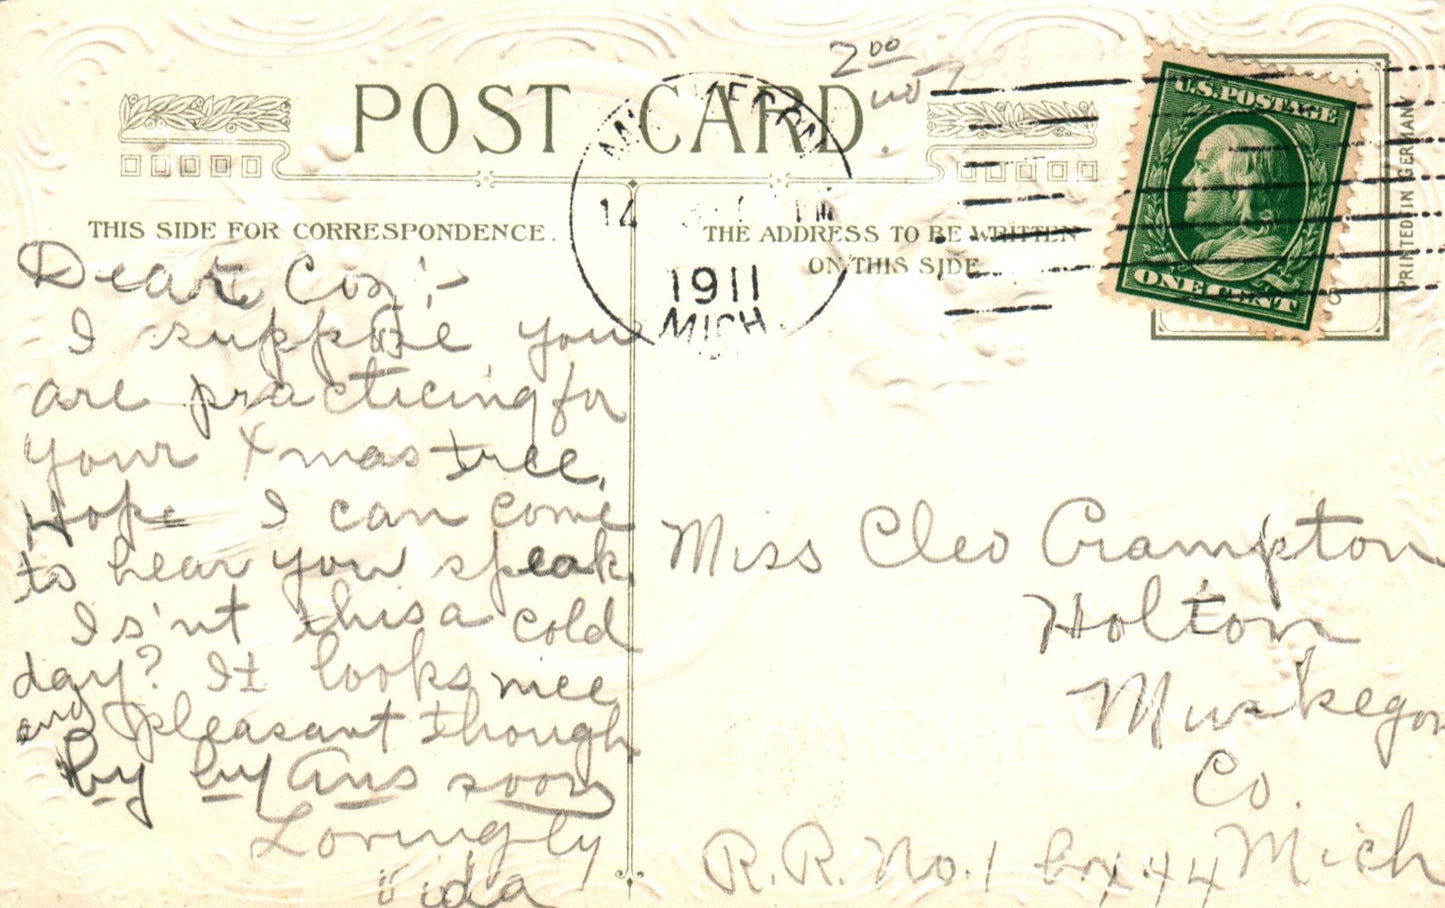 2 00
POST CARD.
MUSKEGON
14
1911
MICH.
U.S. POSTAGE
ONE CENT
PRINTED IN GERMANY
THIS SIDE FOR CORRESPONDENCE.
THE ADDRESS TO BE WRITTEN
ON THIS SIDE
Dear Coz:-
I suppose you
are practicing for
your Xmas tree.
Hope I can come
to hear you speak.
Is'nt this a cold
day? It looks nice
and pleasant though
by by Ans soon
Lovingly
Vida
Miss Cleo Crampton
Holton
Muskegon
Co.
Mich
R.R. No. 1 box 44